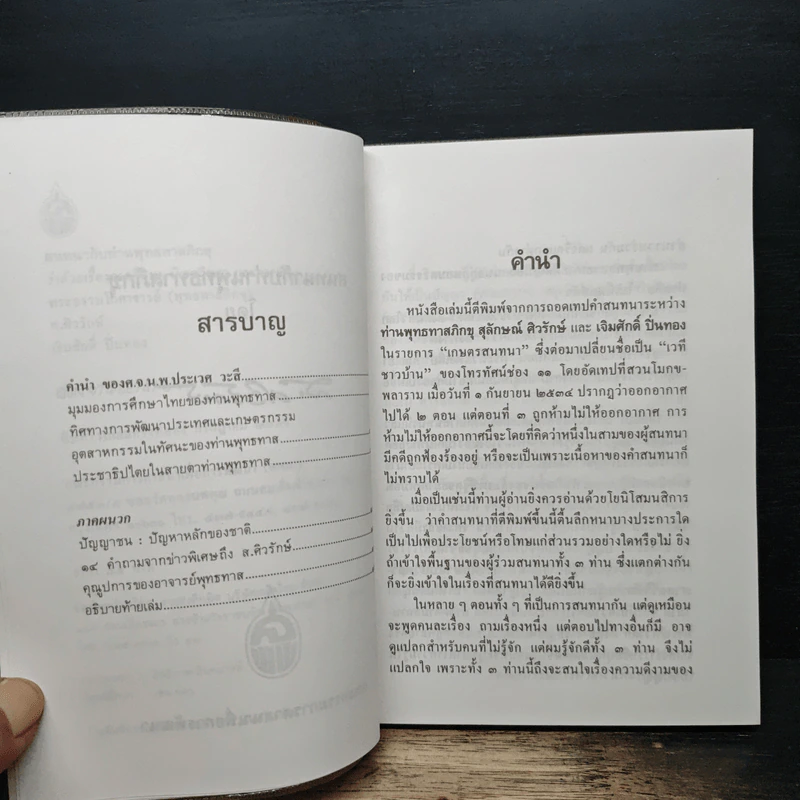 สารบาญ
คำนำ ของศ.จ.น.พ.ประเวศ วะสี
มุมมองการศึกษาไทยของท่านพุทธทาส
ทิศทางการพัฒนาประเทศและเกษตรกรรม
อุตสาหกรรมในทัศนะของท่านพุทธทาส
ประชาธิปไตยในสายตาท่านพุทธทาส
ภาคผนวก
ปัญญาชน : ปัญหาหลักของชาติ
๑๔ คำถามจากข่าวพิเศษถึง ส.ศิวรักษ์
คุณูปการของอาจารย์พุทธทาส
อธิบายท้ายเล่ม
คำนำ
หนังสือเล่มนี้ตีพิมพ์จากการถอดเทปคำสนทนาระหว่าง
ท่านพุทธทาสภิกขุ สุลักษณ์ ศิวรักษ์ และ เจิมศักดิ์ ปิ่นทอง
ในรายการ “เกษตรสนทนา” ซึ่งต่อมาเปลี่ยนชื่อเป็น “เวที
ชาวบ้าน” ของโทรทัศน์ช่อง ๑๑ โดยอัดเทปที่สวนโมกข-
พลาราม เมื่อวันที่ ๑ กันยายน ๒๕๓๔ ปรากฏว่าออกอากาศ
ไปได้ ๒ ตอน แต่ตอนที่ ๓ ถูกห้ามไม่ให้ออกอากาศ การ
ห้ามไม่ให้ออกอากาศนี้จะโดยที่คิดว่าหนึ่งในสามของผู้สนทนา
มีคดีถูกฟ้องร้องอยู่ หรือจะเป็นเพราะเนื้อหาของคำสนทนาก็
ไม่ทราบได้
เมื่อเป็นเช่นนี้ท่านผู้อ่านยิ่งควรอ่านด้วยโยนิโสมนสิการ
ยิ่งขึ้น ว่าคำสนทนาที่ตีพิมพ์ขึ้นนี้ตื้นลึกหนาบางประการใด
เป็นไปเพื่อประโยชน์หรือโทษแก่ส่วนรวมอย่างใดหรือไม่ ยิ่ง
ถ้าเข้าใจพื้นฐานของผู้ร่วมสนทนาทั้ง ๓ ท่าน ซึ่งแตกต่างกัน
ก็จะยิ่งเข้าใจในเรื่องที่สนทนาได้ดียิ่งขึ้น
ในหลาย ๆ ตอนทั้ง ๆ ที่เป็นการสนทนากัน แต่ดูเหมือน
จะพูดคนละเรื่อง ถามเรื่องหนึ่ง แต่ตอบไปทางอื่นก็มี อาจ
ดูแปลกสำหรับคนที่ไม่รู้จัก แต่ผมรู้จักดีทั้ง ๓ ท่าน จึงไม่
แปลกใจ เพราะทั้ง ๓ ท่านนี้ถึงจะสนใจเรื่องความดีงามของ